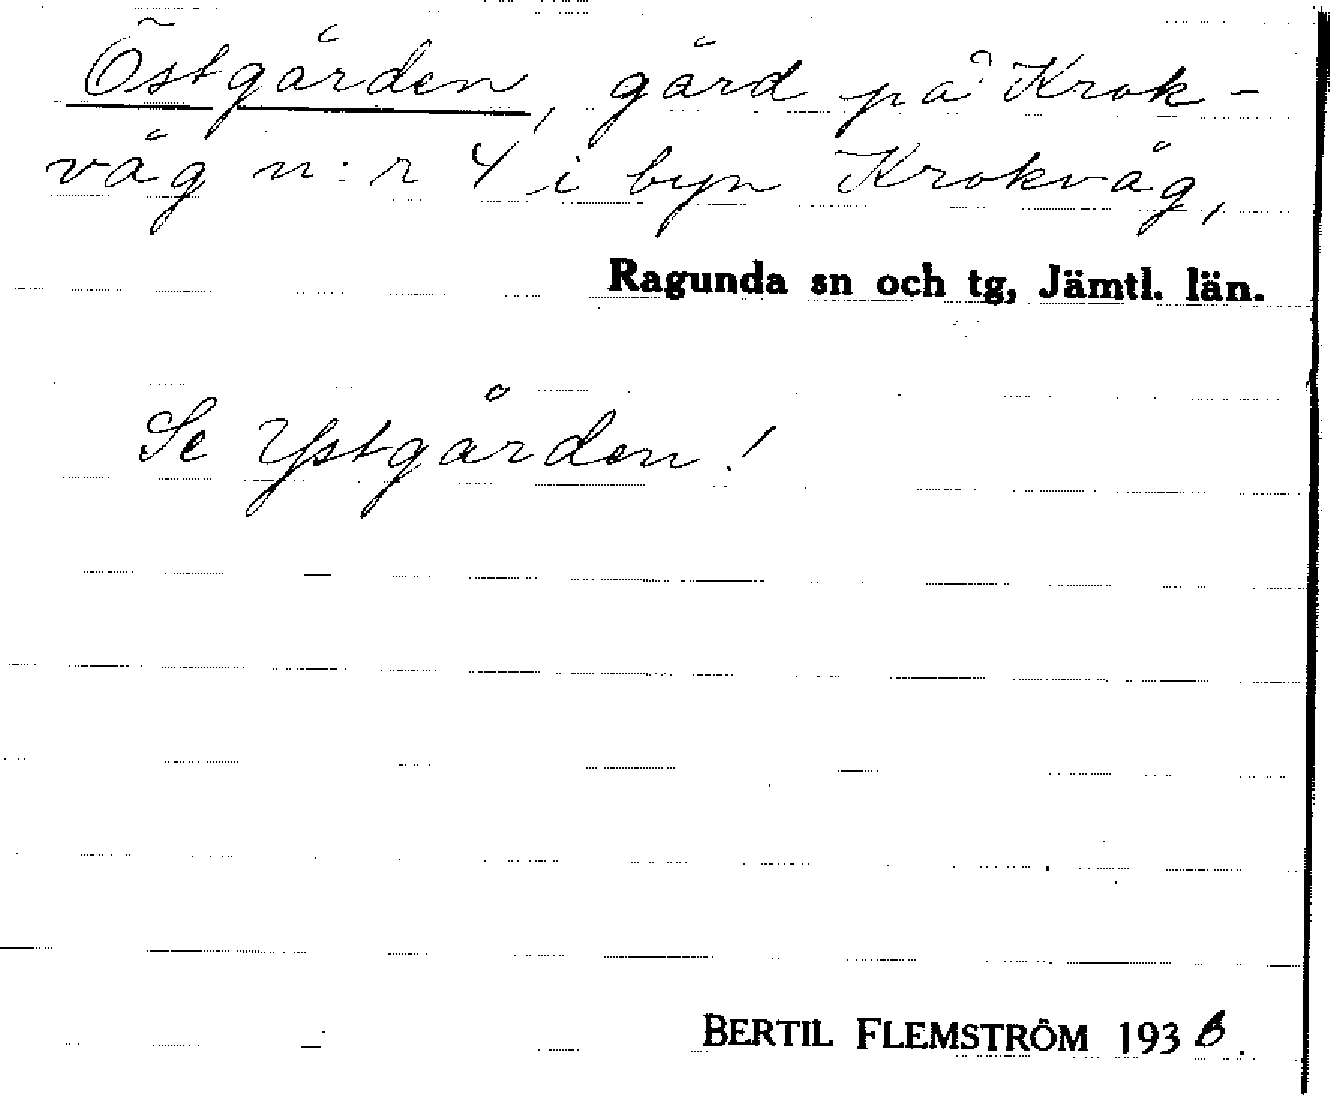 Östgården, gård på Krok-
våg n:r 4 i byn Krokvåg,
Ragunda sn och tg, Jämtl. län.
Se Ystgården!
BERTIL FLEMSTRÖM 1936.